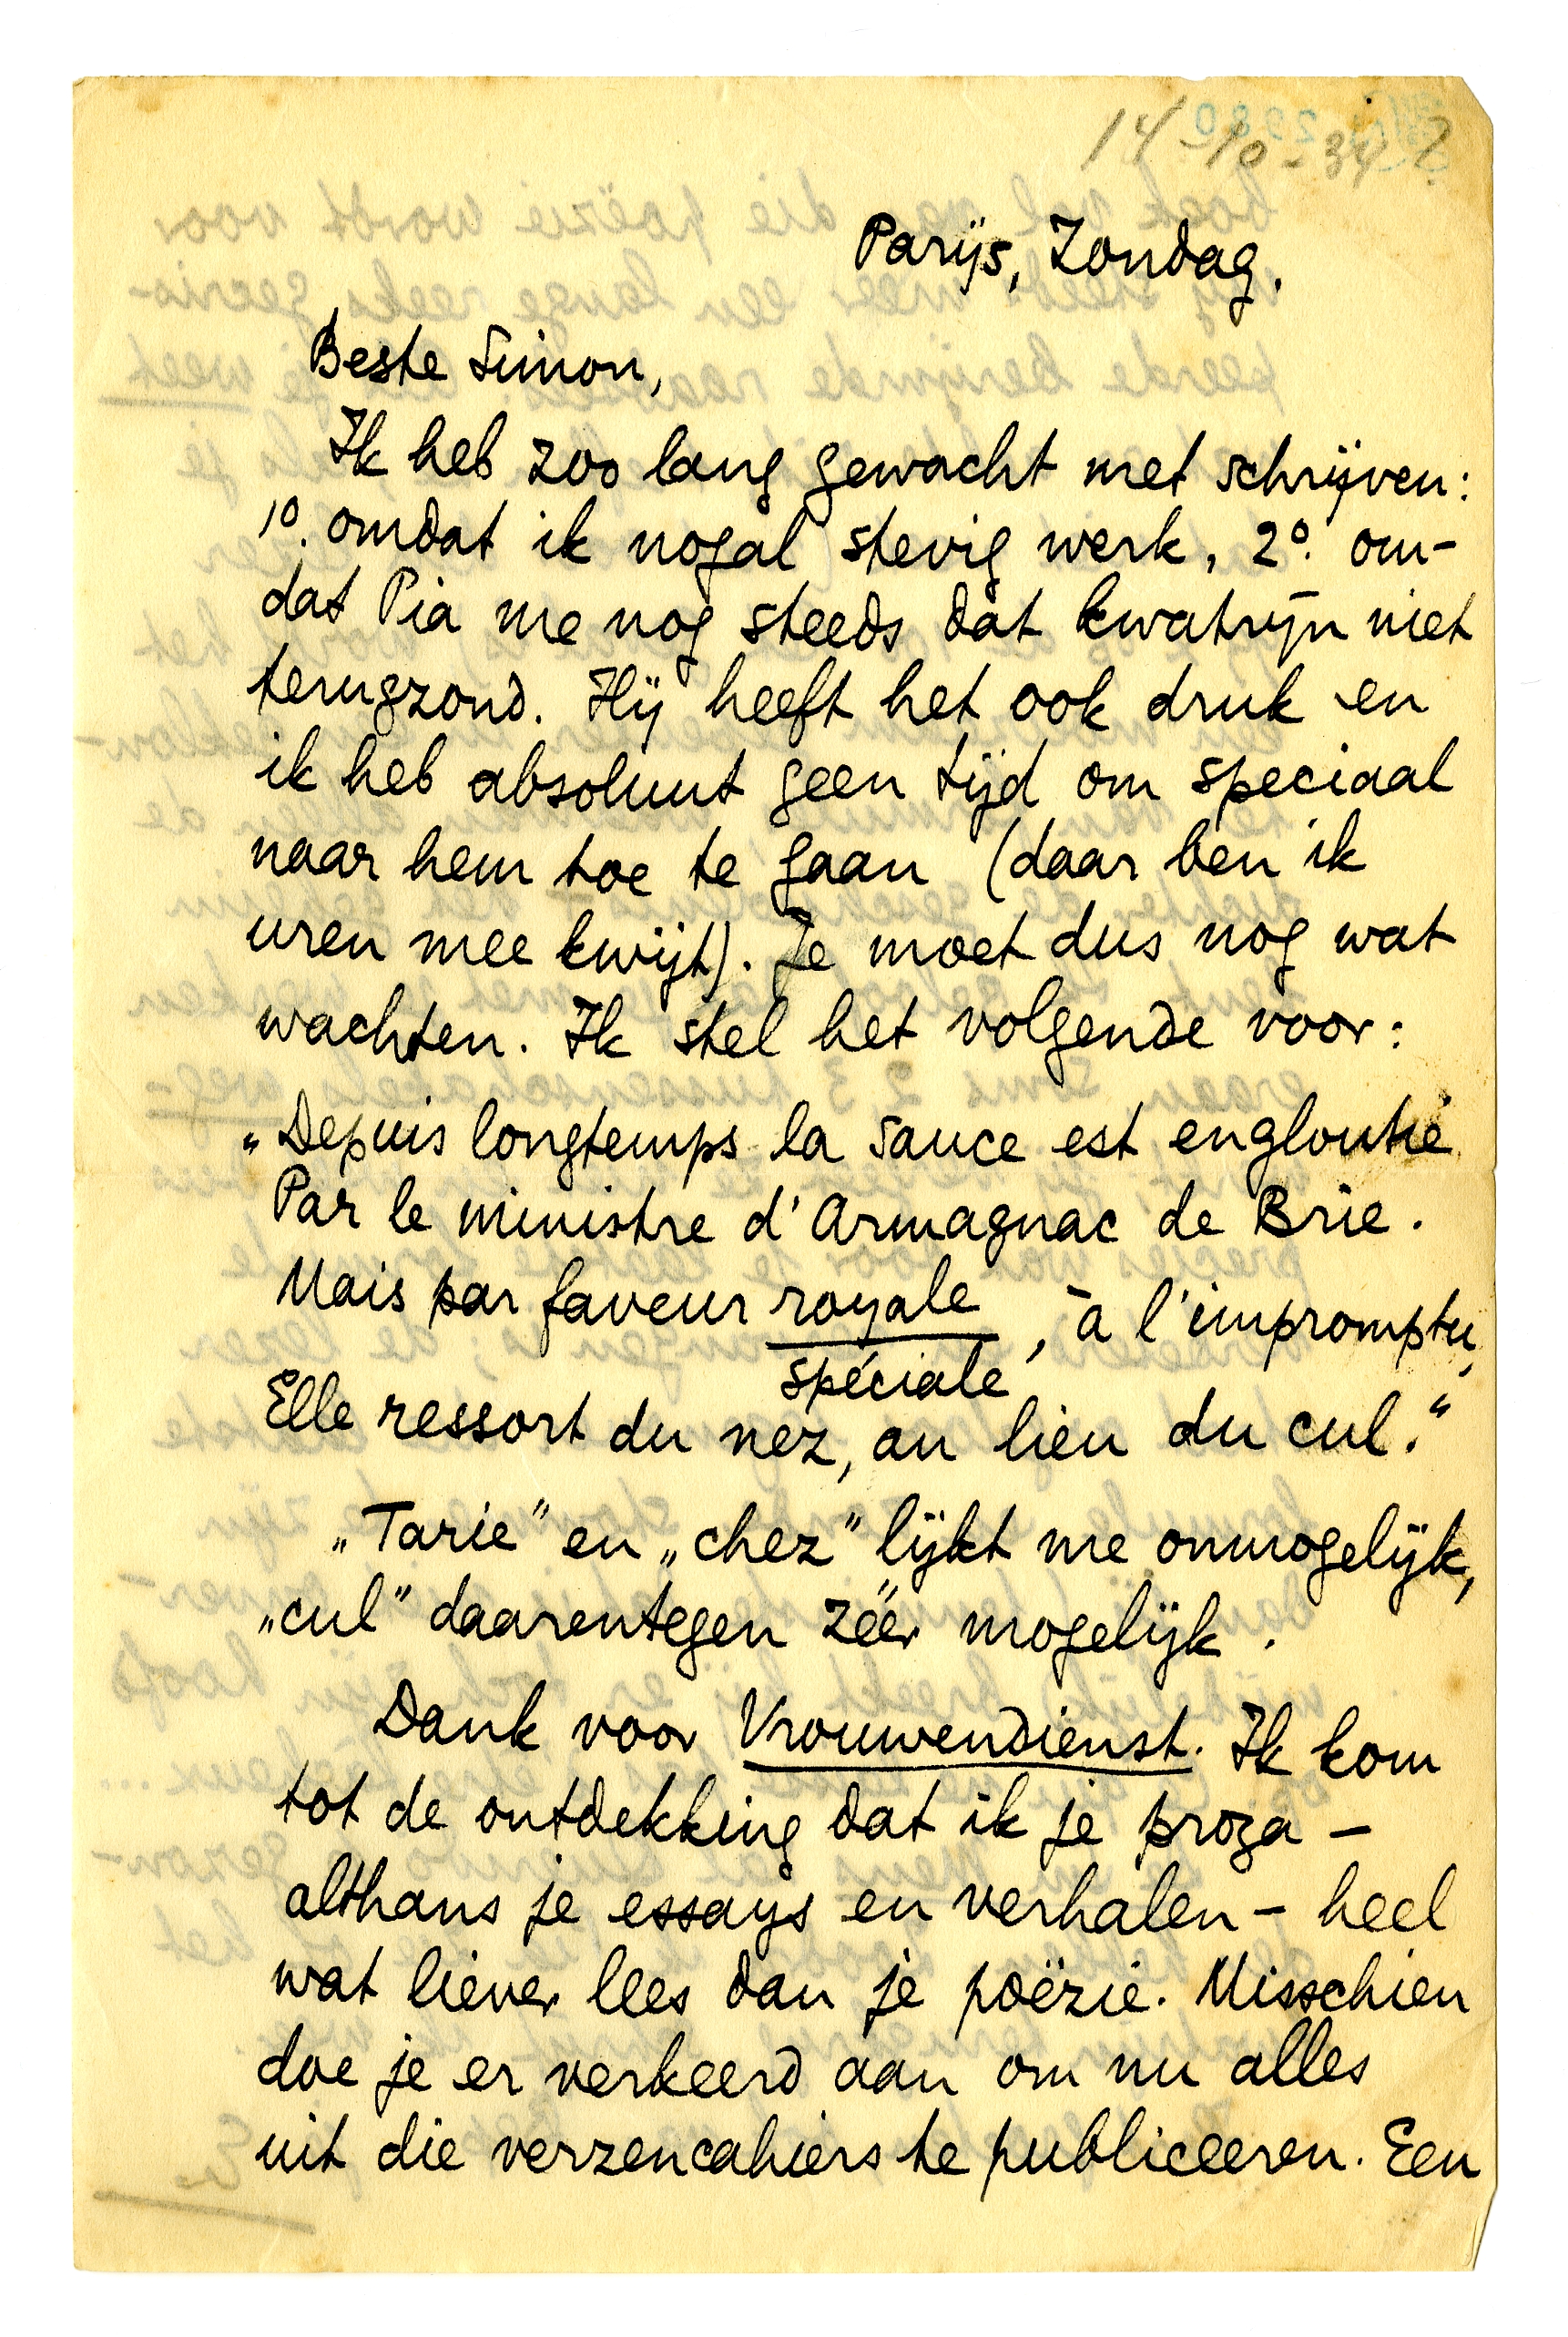 14-10-34?
Parijs, Zondag.
Beste Simon,
Ik heb zoo lang gewacht met schrijven:
1º. omdat ik nogal stevig werk, 2º. om-
dat Pia me nog steeds dat kwatrijn niet
terugzond. Hij heeft het ook druk en
ik heb absoluut geen tijd om speciaal
naar hem toe te gaan (daar ben ik
uren mee kwijt). Je moet dus nog wat
wachten. Ik stel het volgende voor:
„Depuis longtemps la sauce est engloutie
Par le ministre d'Armagnac de Brie.
Mais par faveur royale, à l'impromptu,
spéciale
Elle ressort du nez, au lieu du cul.“
„Tarie” en „chez” lijkt me onmogelijk,
„cul” daarentegen zéér mogelijk.
Dank voor Vrouwendienst. Ik kom
tot de ontdekking dat ik je proza –
althans je essays en verhalen – heel
wat liever lees dan je poëzie. Misschien
doe je er verkeerd aan om nu alles
uit die verzencahiers te publiceeren. Een